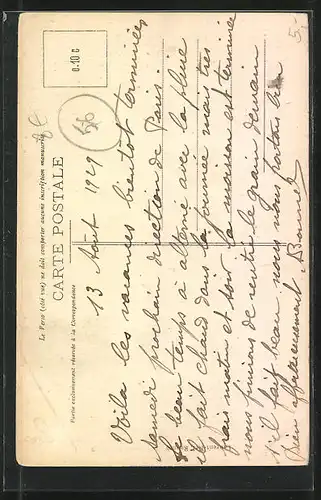 Le Verso (côté vue) ne doit comporter aucune inscription manuscrite
CARTE POSTALE
Partie exclusivement réservée à la Correspondance
0.10 c
46
5.-
13 Août 1929
Voilà les vacanses bientot terminées
samedi prochain direction de Paris.
le beau temps à alterné avec la pluie
il fait chaud dans la journée mais très
frais matin et soir la moisson est terminée
nous finirons de rentré le grain demain
s'il fait beau nous nous portons bien
Bien affectueusement